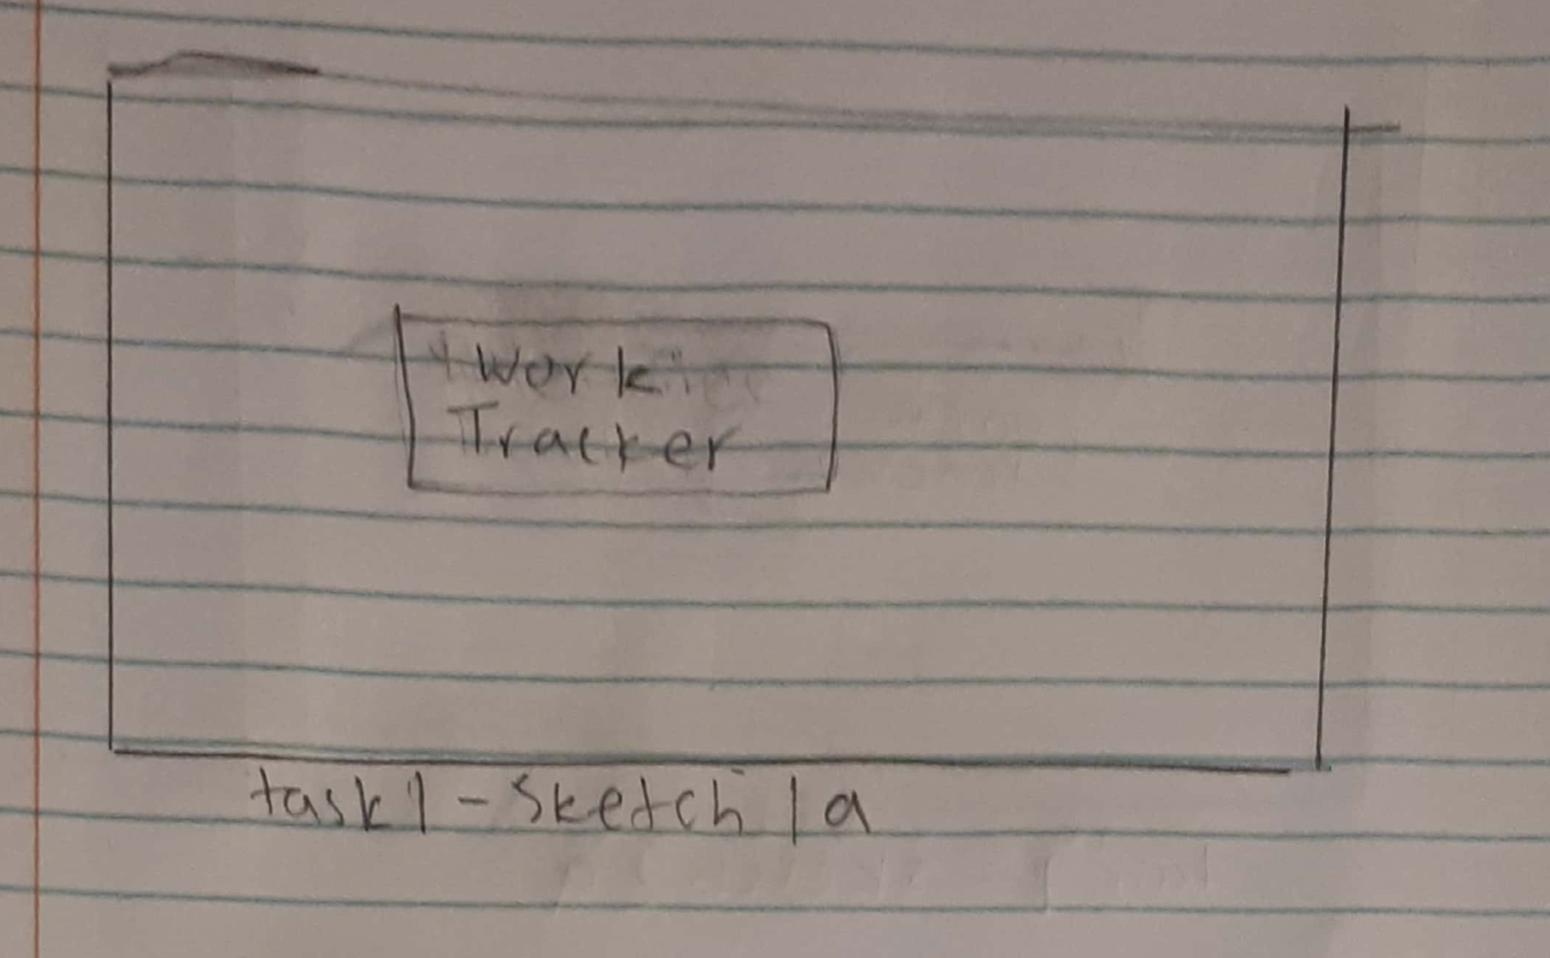 Work
Tracker
task1 - Sketch 1a